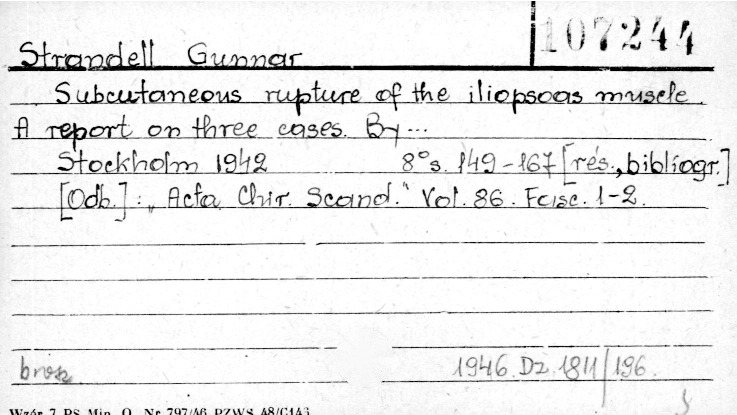 107244
Strandell Gunnar
Subcutaneous rupture of the iliopsoas muscle.
A report on three cases. By...
Stockholm 1942 8° s. 149-167 [rés., bibliogr.]
[Odb.]: „Acta Chir. Scand." Vol. 86. Fasc. 1-2.
brosz 1946. Dz. 1811/196.
Wzór 7 PS Min. O. Nr 797/46 PZWS 48/C143